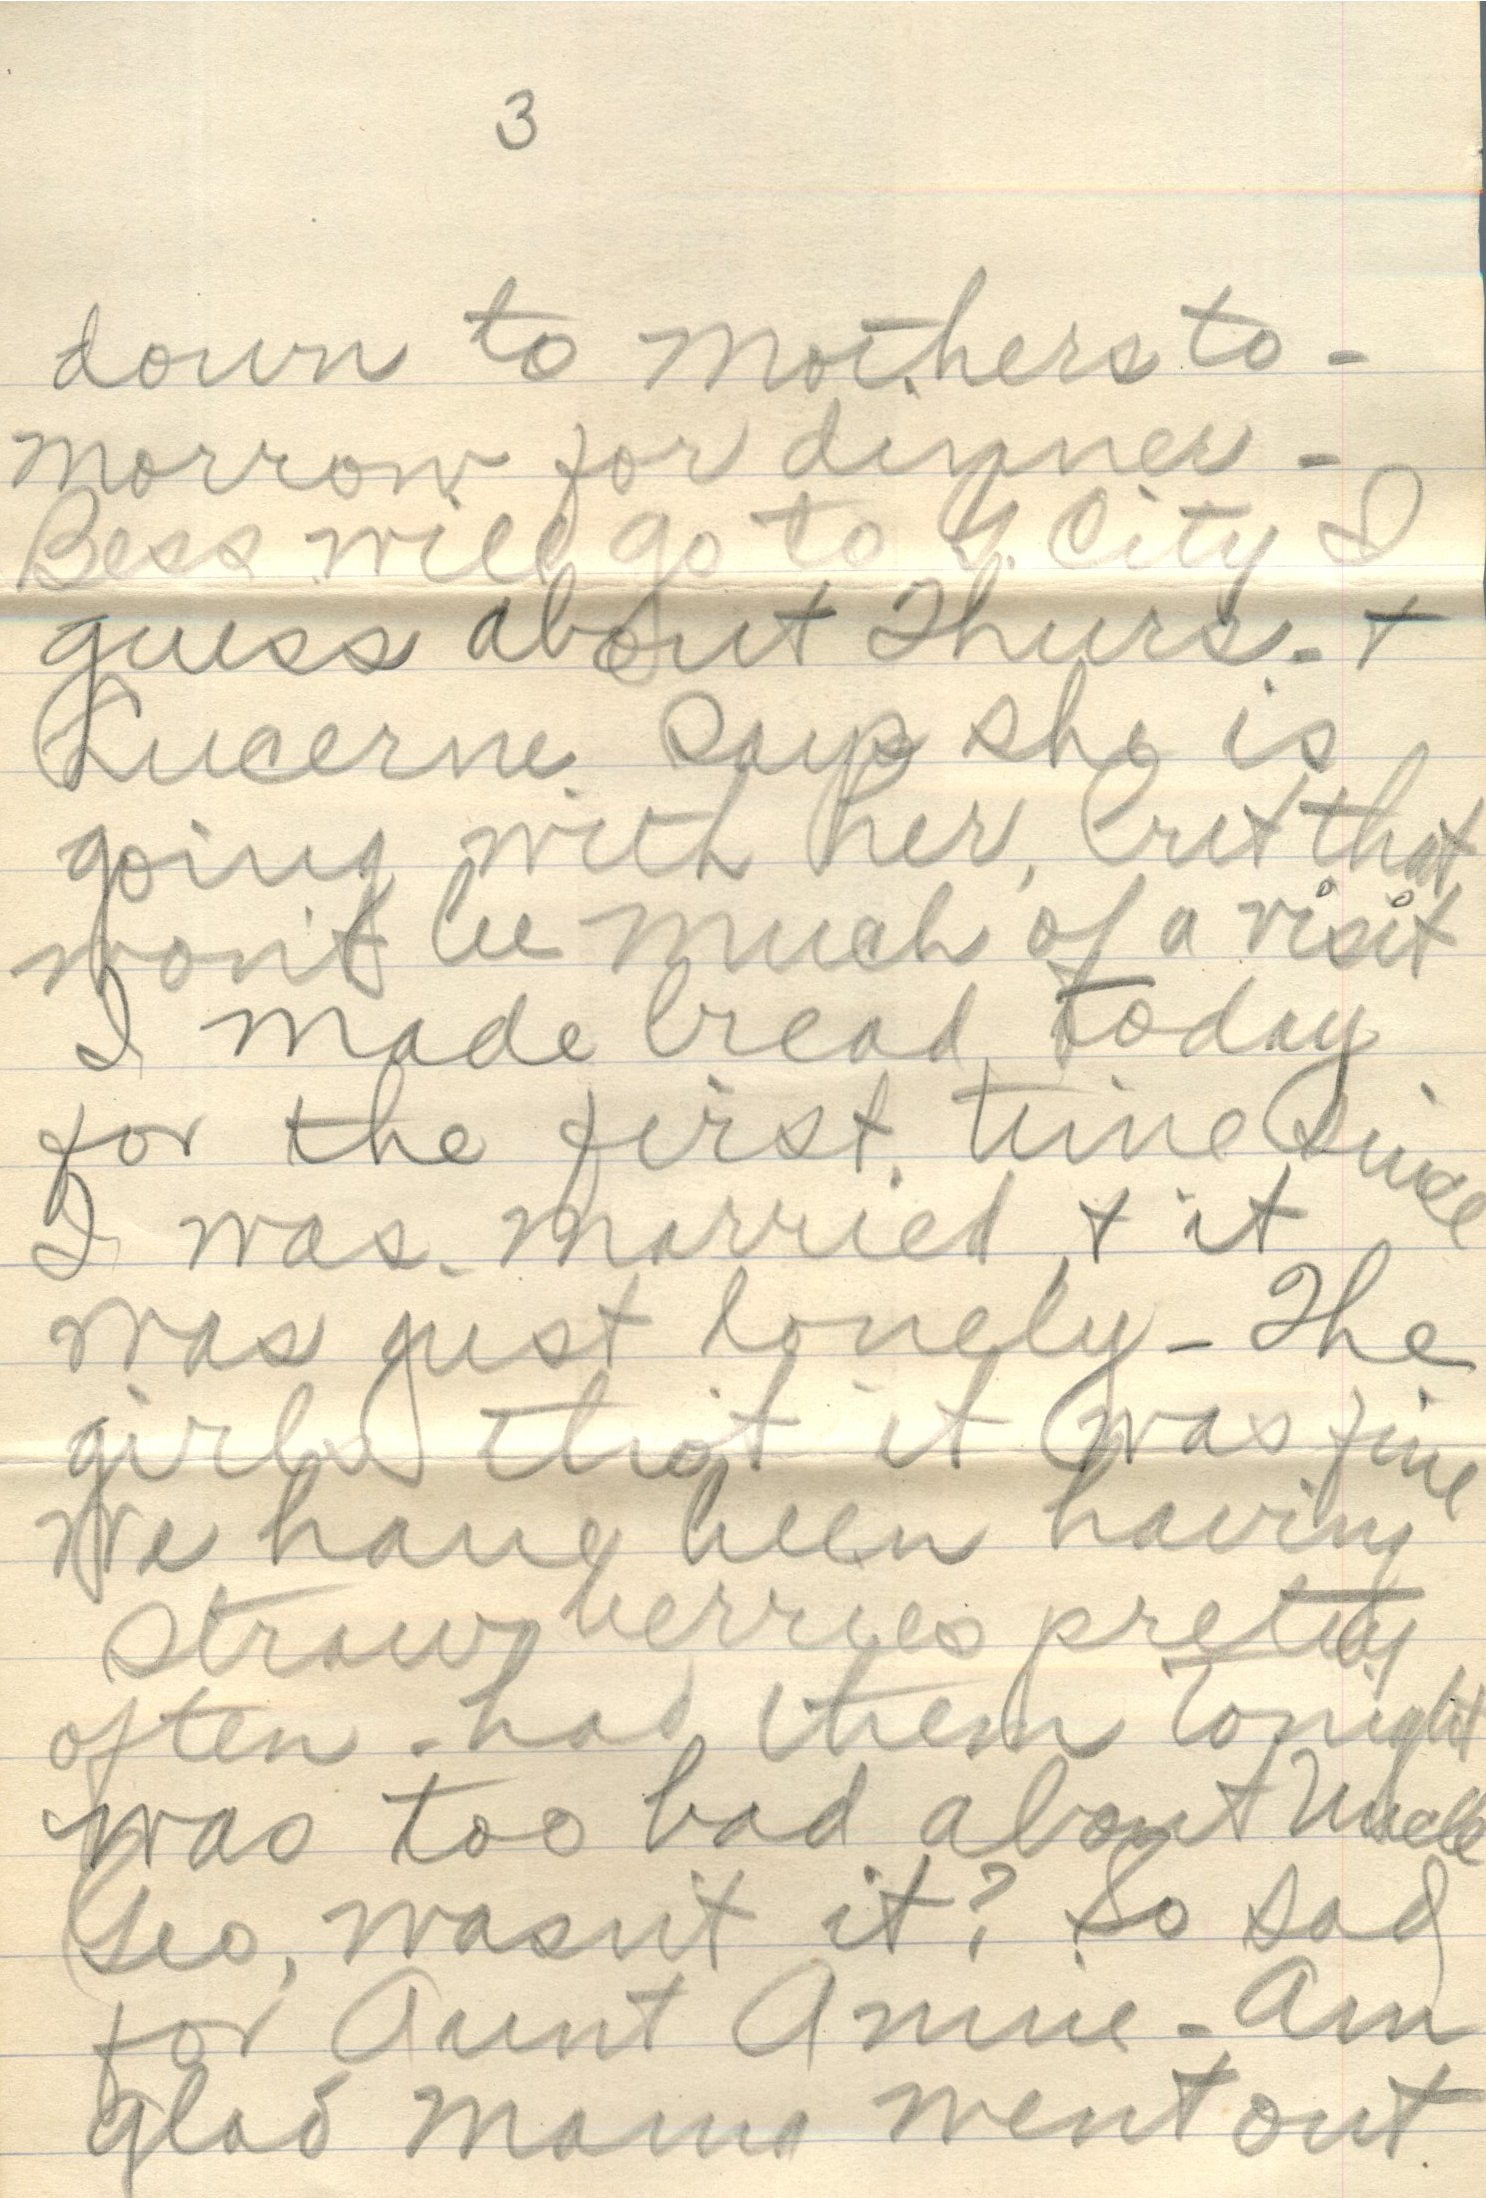 3
down to Mothers to-
morrow for dinner -
Bess will go to Y. City I
guess about Thurs. - +
Lucerne says she is
going with her, but that
won't be much of a visit
I made bread today
for the first time since
I was married + it
was just lonely - The
girls thot it was fine
We have been having
strawberries pretty
often - had them tonight
was too bad about Uncle
Geo, wasn't it? So sad
for Aunt Annie - Am
glad Mama went out.